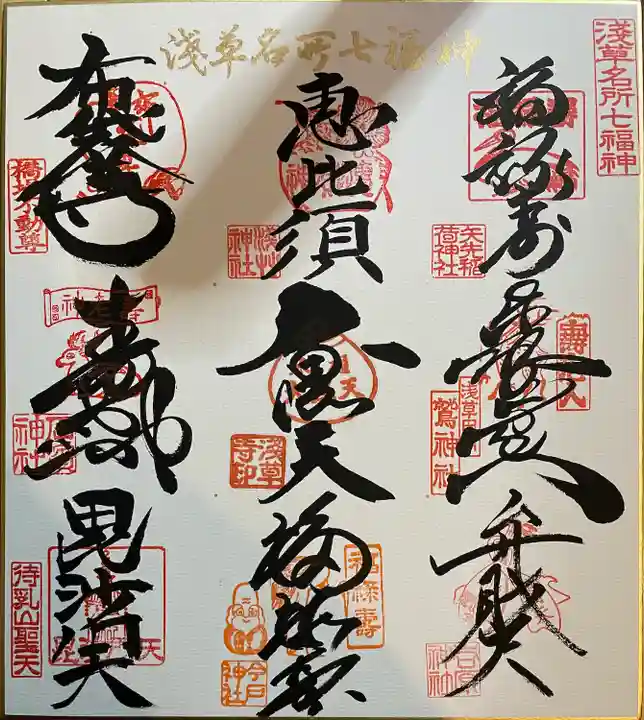 浅草名所七福神
淺草名所七福神
福禄寿
矢先稲荷神社
寿老人
鷲神社
弁財天
吉原神社
恵比須
浅草神社
大黒天
浅草寺印
福禄寿
福禄寿
今戸神社
布袋尊
橋場不動尊
寿老神
毘沙門天
待乳山聖天